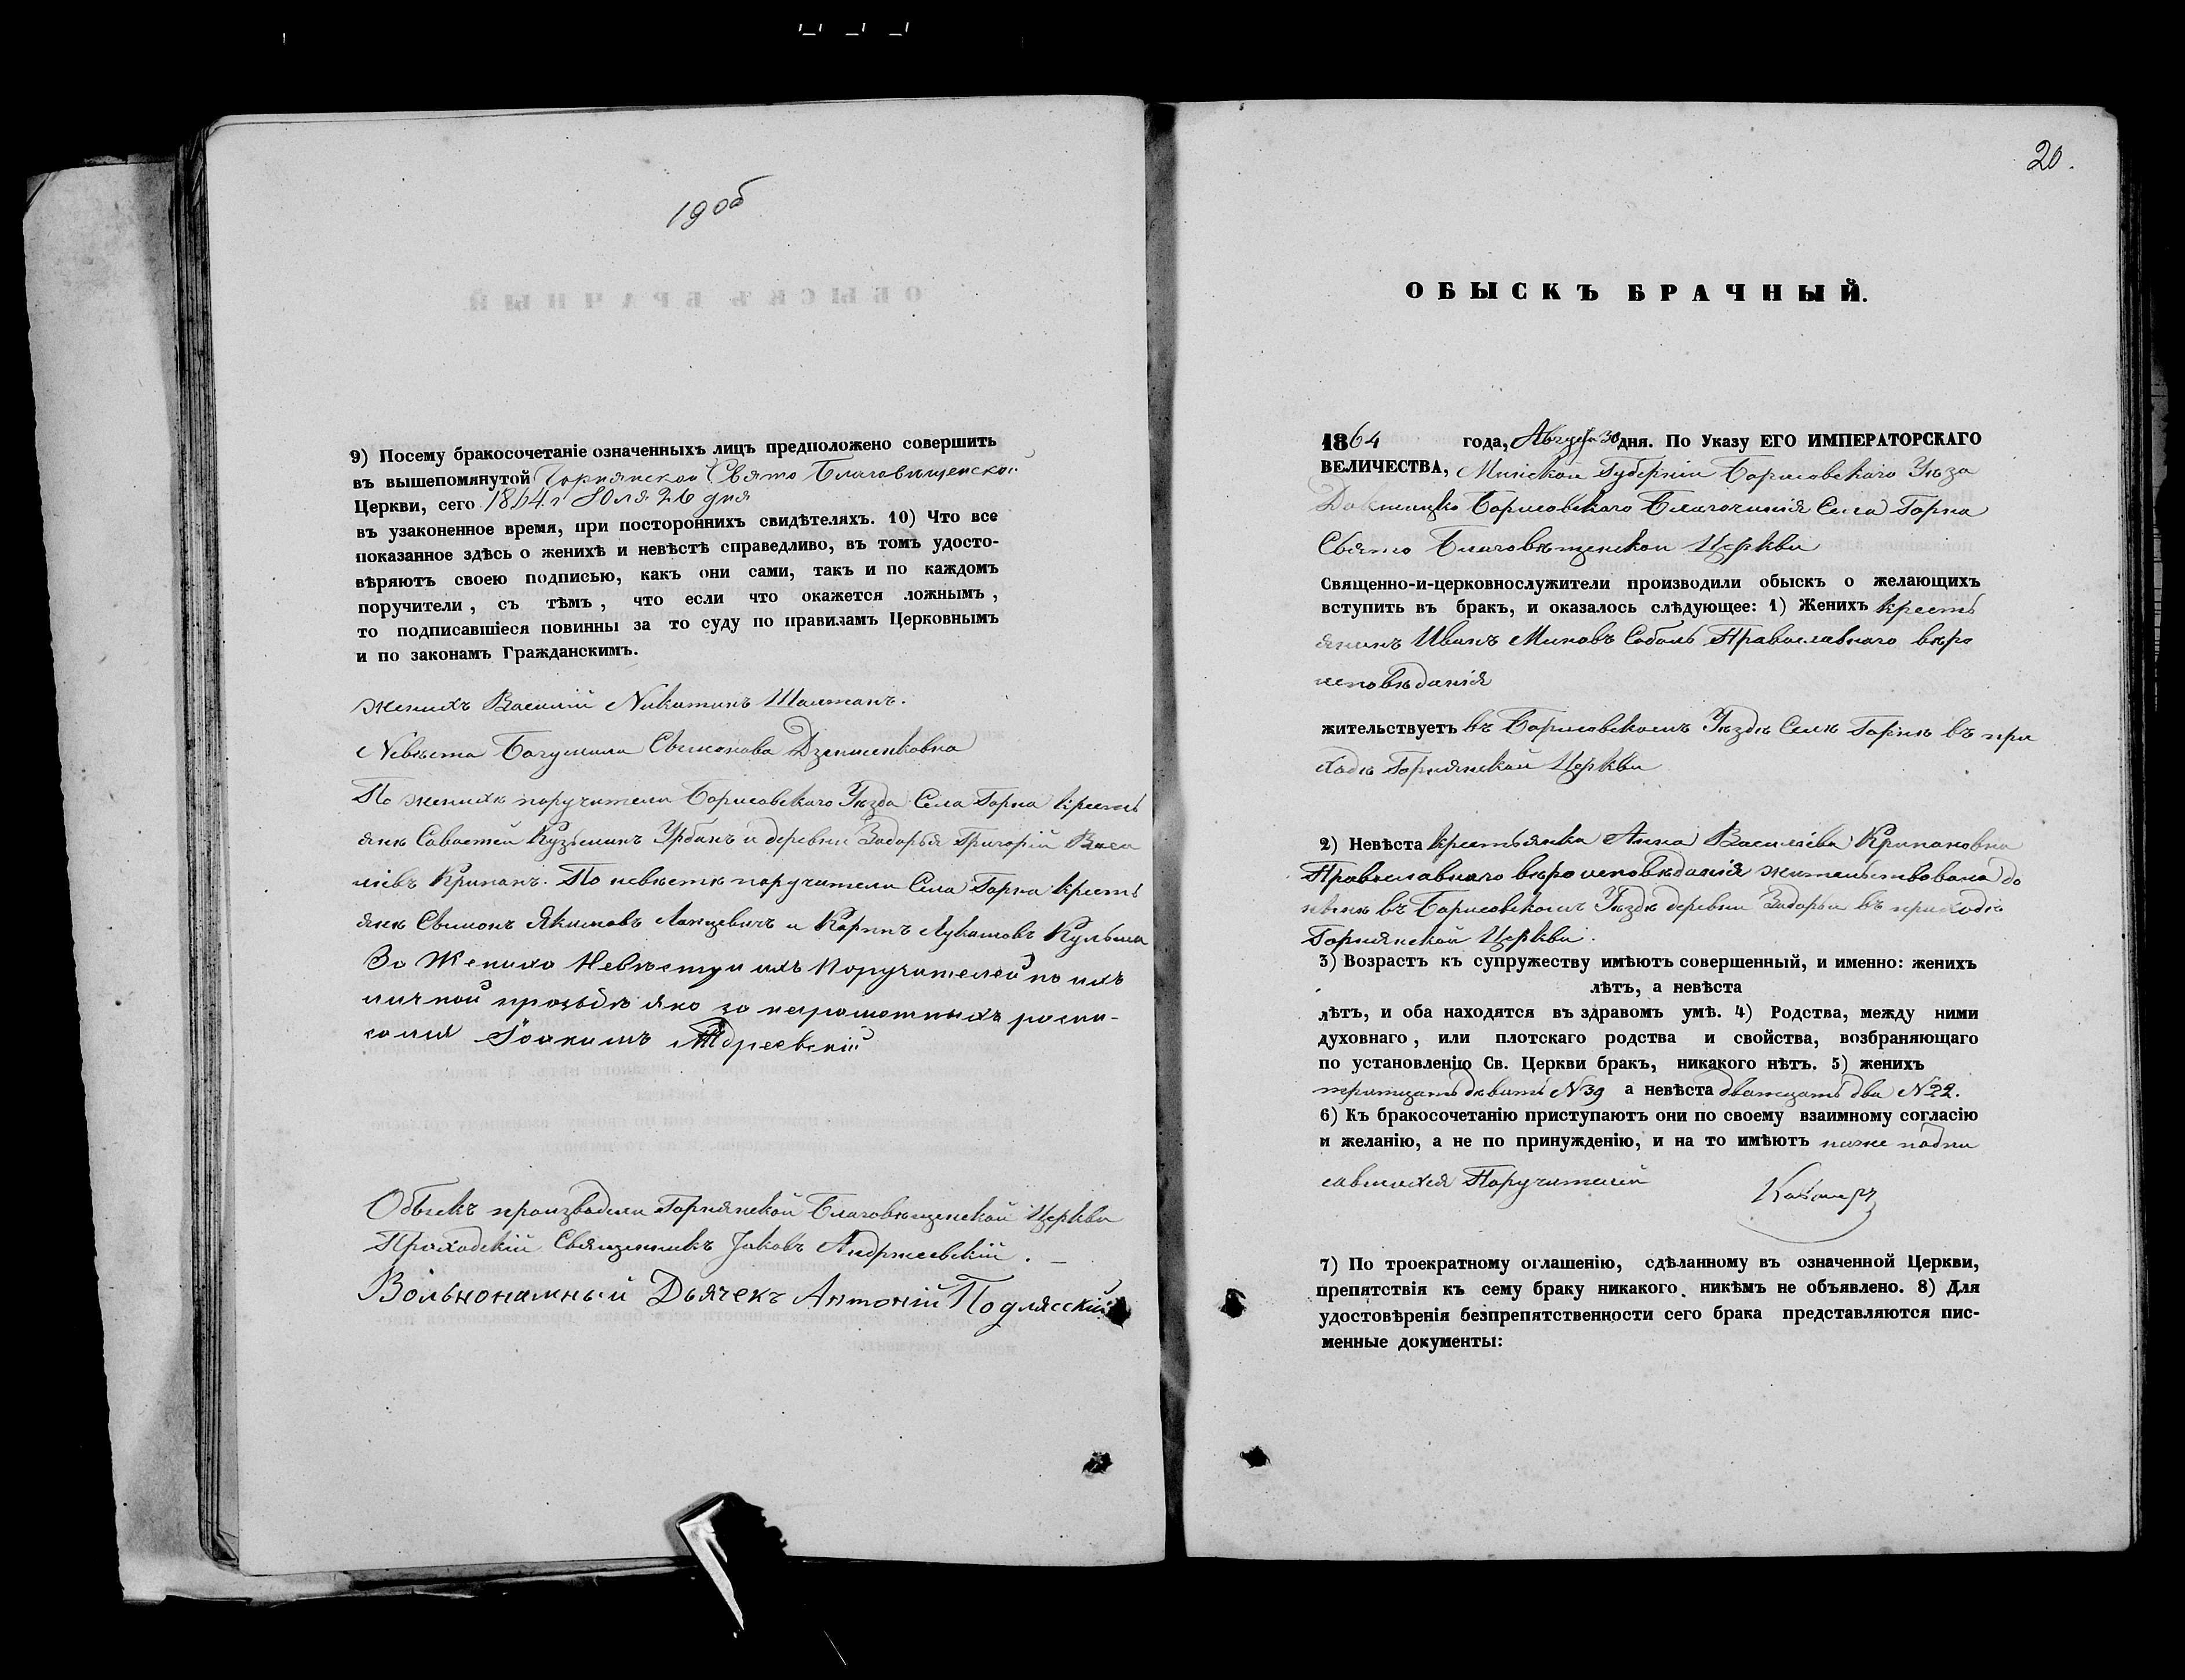 19 об
9) Посему бракосочетаніе означенныхъ лицъ предположено совершить
въ вышепомянутой Горнянской Свято Благовѣщенской
Церкви, сего 1864 г Юля 26 дня
въ узаконенное время, при постороннихъ свидѣтеляхъ. 10) Что все
показанное здѣсь о женихѣ и невѣстѣ справедливо, въ томъ удосто-
вѣряютъ своею подписью, какъ они сами, такъ и по каждомъ
поручители, съ тѣмъ, что если что окажется ложнымъ,
то подписавшіеся повинны за то суду по правиламъ Церковнымъ
и по законамъ Гражданскимъ.
Женихъ Василій Никитинъ
Невѣста Богумила Свимонова
По женихѣ поручители Борисовскаго Уѣзда Села Горна кресть
янѣ Савастей Кузьминъ Урбанъ и деревни Задорья Григорій Васи
ліевъ Крипанъ. По невѣстѣ поручители Села Горна кресть
янѣ Свимонъ Якимовъ и Карпъ Лукашовъ Кульша
За Жениха Невѣсту и ихъ Поручителей по ихъ
личной прозьбѣ яко за неграмотныхъ роспи-
сался Іоакимъ
Обыскъ производили Горнянской Благовѣщенской Церкви
Приходскій Священникъ Іаковъ Андржеевскій.
Вольнонаемный Дьячекъ Антоній Подлясскій
20.
ОБЫСКЪ БРАЧНЫЙ.
1864 года, Августа 30 дня. По Указу ЕГО ИМПЕРАТОРСКАГО
ВЕЛИЧЕСТВА, Минской Губерніи Борисовскаго Уѣзда
Докшицко Борисовскаго Благочинія Села Горна
Свято Благовѣщенской Церкви
Священно-и-церковнослужители производили обыскъ о желающихъ
вступить въ бракъ, и оказалось слѣдующее: 1) Женихъ кресть
янинъ Иванъ Миновъ Соболь Православнаго вѣро
исповѣданія
жительствуетъ въ Борисовскомъ Уѣздѣ Селѣ Горнѣ въ при
ходѣ Горнянской Церкви
2) Невѣста крестьянка Анна Василіева Крипановна
Православнаго вѣроисповѣданія жительствовала до
нынѣ въ Борисовскомъ Уѣздѣ деревни Задорьи въ приходѣ
Горнянской Церкви.
3) Возрастъ къ супружеству имѣютъ совершенный, и именно: женихъ
лѣтъ, а невѣста
лѣтъ, и оба находятся въ здравомъ умѣ. 4) Родства, между ними
духовнаго, или плотскаго родства и свойства, возбраняющаго
по установленію Св. Церкви бракъ, никакого нѣтъ. 5) женихъ
тритцать девять №39 а невѣста дватцать два №22.
6) Къ бракосочетанію приступаютъ они по своему взаимному согласію
и желанію, а не по принужденію, и на то имѣютъ ниже подпи
савшихся Поручителей
7) По троекратному оглашенію, сдѣланному въ означенной Церкви,
препятствія къ сему браку никакого никѣмъ не объявлено. 8) Для
удостовѣренія безпрепятственности сего брака представляются пис-
менные документы: